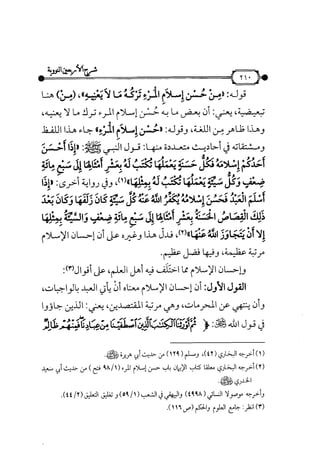 شرح الأربعين النووية
٢١٠
قوله: «مِنْ حُسْنِ إِسْلَامِ الْمَرْءِ تَرْكُهُ مَا لَا يَعْنِيهِ»، (مِنْ) هنا
تبعيضية، يعني: أن بعض ما به حُسْن إسلام المرء ترك ما لا يعنيه،
وهذا ظاهر من اللغة، وقوله: «حُسْنِ إِسْلَامِ الْمَرْءِ» جاء هذا اللفظ
ومشتقاته في أحاديث متعددة منها: قول النبي ﷺ: «إِذَا أَحْسَنَ
أَحَدُكُمْ إِسْلَامَهُ فَكُلُّ حَسَنَةٍ يَعْمَلُهَا تُكْتَبُ لَهُ بِعَشْرِ أَمْثَالِهَا إِلَى سَبْعِ مِائَةِ
ضِعْفٍ وَكُلُّ سَيِّئَةٍ يَعْمَلُهَا تُكْتَبُ لَهُ بِمِثْلِهَا»(١)، وفي رواية أخرى: «إِذَا
أَسْلَمَ الْعَبْدُ فَحَسُنَ إِسْلَامُهُ يُكَفِّرُ اللَّهُ عَنْهُ كُلَّ سَيِّئَةٍ كَانَ زَلَفَهَا وَكَانَ بَعْدَ
ذَلِكَ الْقِصَاصُ الْحَسَنَةُ بِعَشْرِ أَمْثَالِهَا إِلَى سَبْعِ مِائَةِ ضِعْفٍ وَالسَّيِّئَةُ بِمِثْلِهَا
إِلَّا أَنْ يَتَجَاوَزَ اللَّهُ عَنْهَا»(٢)، فدل هذا وغيره على أن إحسان الإسلام
مرتبة عظيمة، وفيها فضل عظيم.
وإحسان الإسلام مما اختلف فيه أهل العلم، على أقوال(٣):
القول الأول: أن إحسان الإسلام معناه أنْ يأتي العبد بالواجبات،
وأن ينتهي عن المحرمات، وهي مرتبة المقتصدين، يعني: الذين جاؤوا
في قول الله ﷻ: ﴿ ثُمَّ أَوْرَثْنَا الْكِتَابَ الَّذِينَ اصْطَفَيْنَا مِنْ عِبَادِنَا فَمِنْهُمْ ظَالِمٌ
(١) أخرجه البخاري (٤٢)، ومسلم (١٢٩) من حديث أبي هريرة ﷺ.
(٢) أخرجه البخاري معلقا كتاب الإيمان باب حسن إسلام المرء (٩٨/١ فتح) من حديث أبي سعيد
الخدري
وأخرجه موصولا النسائي (٤٩٩٨) والبيهقي في الشعب (٥٩/١) و تغليق التعليق (٤٤/٢).
(٣) انظر: جامع العلوم والحكم (ص ١١٦).